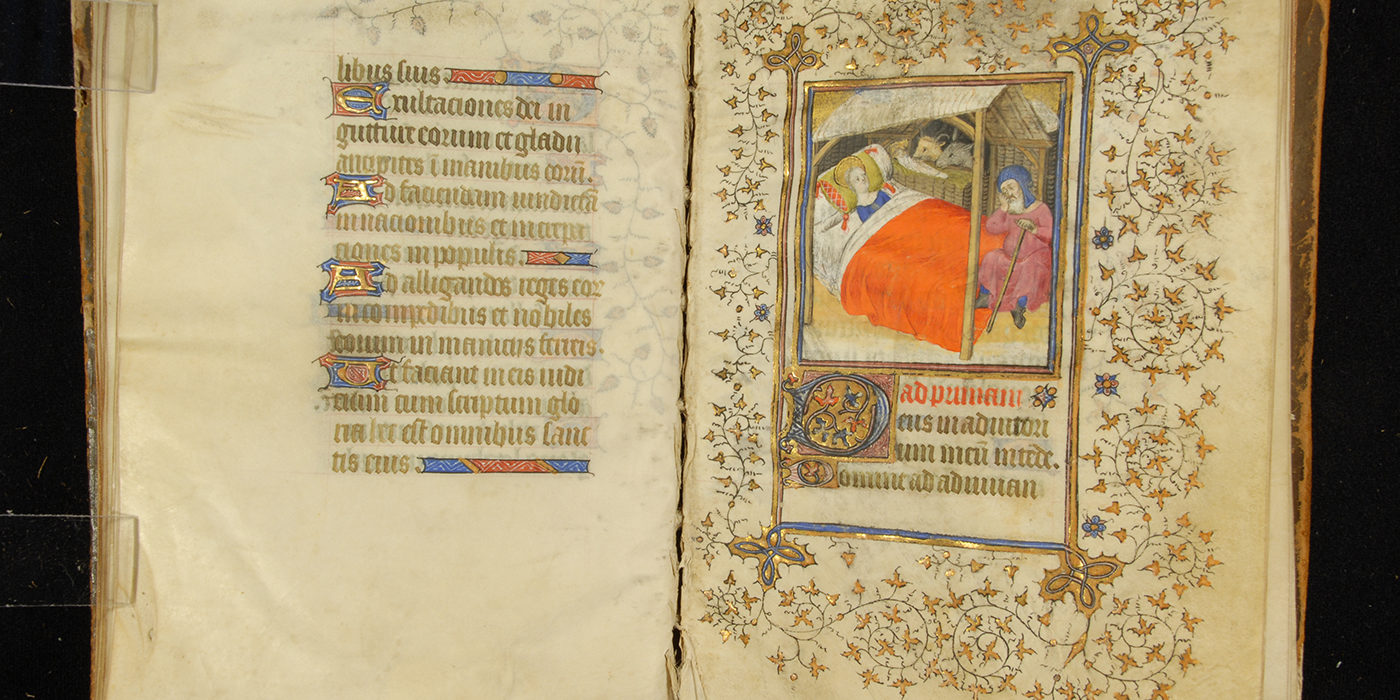 libus suis
Exultaciones dei in
gutture eorum et gladii
ancipites ī manibus eorū.
Ad faciendam uindictā
in nacionibus et increpa
ciones in populis
Ad alligandos reges eor
in compedibus et nobiles
eorum in manicis ferreis.
Ut faciant in eis iudi
cium cum scriptum glo
ria hec est omnibus sanc
tis eius
ad primam
Deus in adiutori
um meū intēde.
Domine ad adiuuan